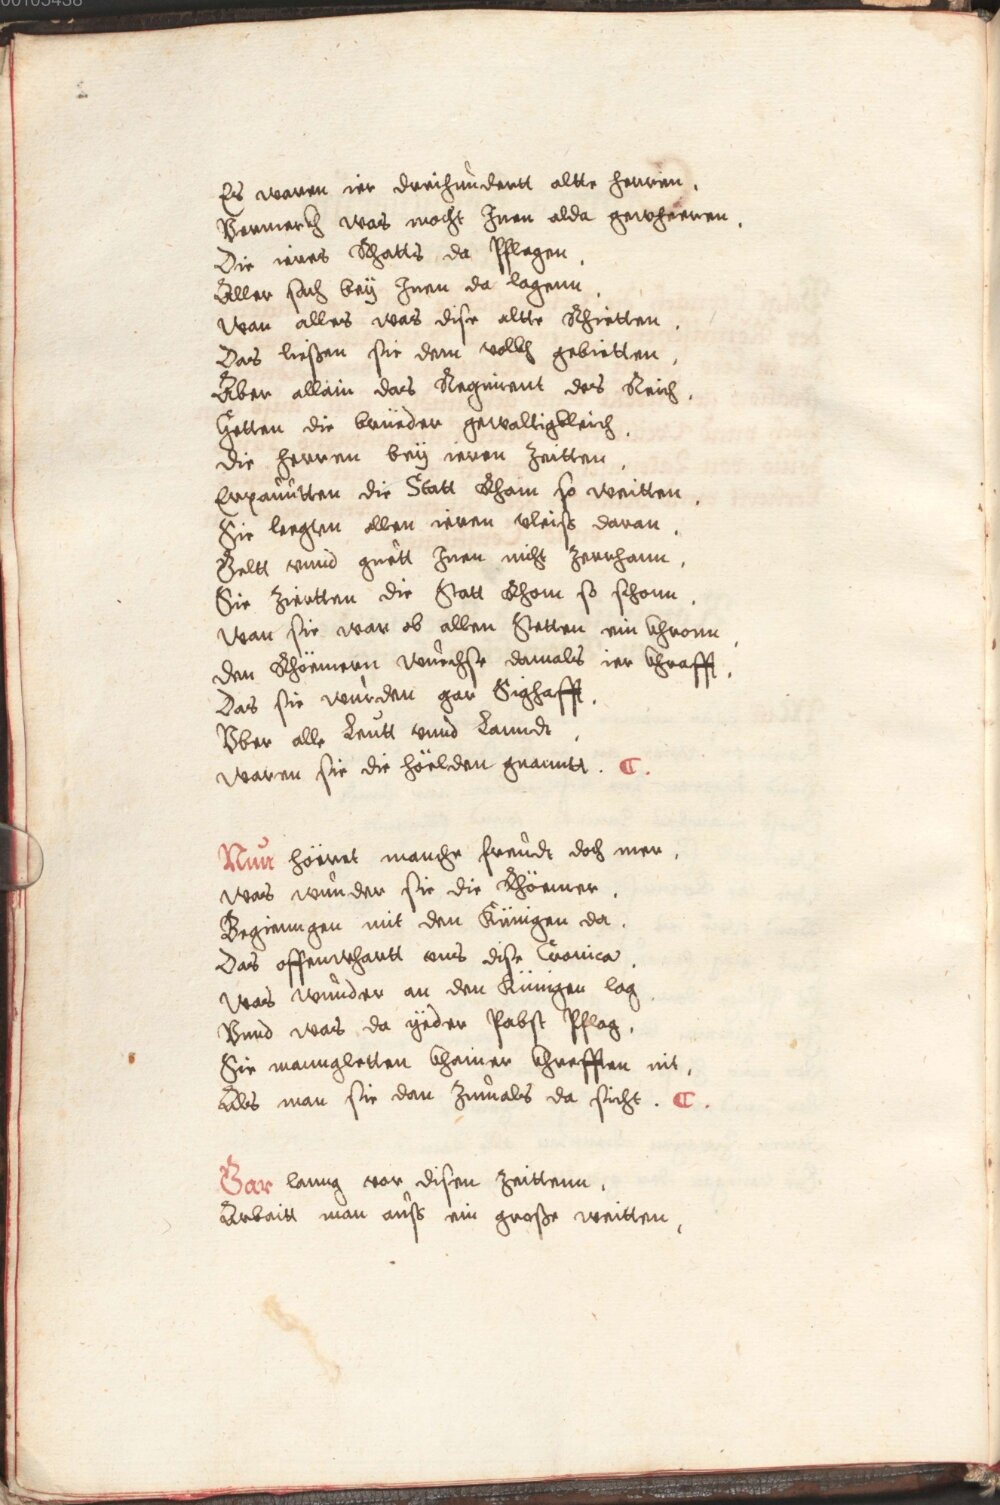 Es waren ier dreihundertt altte herren,
Vermerkh was mocht Jnen alda gewherren,
Die ieres Schatts da Pflagen,
Aller sach bey Jnen da lagenn,
Wan alles was dise altte Rhietten,
Das ließen sie dem vollkh gebietten,
Aber allain das Regiment des Reich,
Hetten die brüeder gewaltigkleich,
Die herren bey ieren Zeitten,
Erpautten die Statt Rhom so weitten,
Sie legten allen ieren vleiß daran,
Geltt vnnd guett Jnen nicht Zerrhann,
Sie Ziertten die Statt Rhom so schonn,
Wan sie war ob allen Stetten ein khronn,
Den Rhöemern wuechse damals ier khrafft,
Das sie wurden gar Sighafft,
Vber alle Leutt vnnd Lanndt,
Waren sie die höelden gnanntt. C.
Nun höeret manche freudt doch mer,
Was wunder sie die Rhöemer,
Begienngen mit den Künigen da,
Das offenwhartt vnns dise Cronica,
Was wunder an den Künigen lag
Vnnd was da yeder Pabst Pflag,
Sie manngletten khainer khrefften nit,
Als man sie dan Zumals da sicht. C.
Gar lanng vor disen Zeittenn,
Arbaitt man auß ein große weitten,